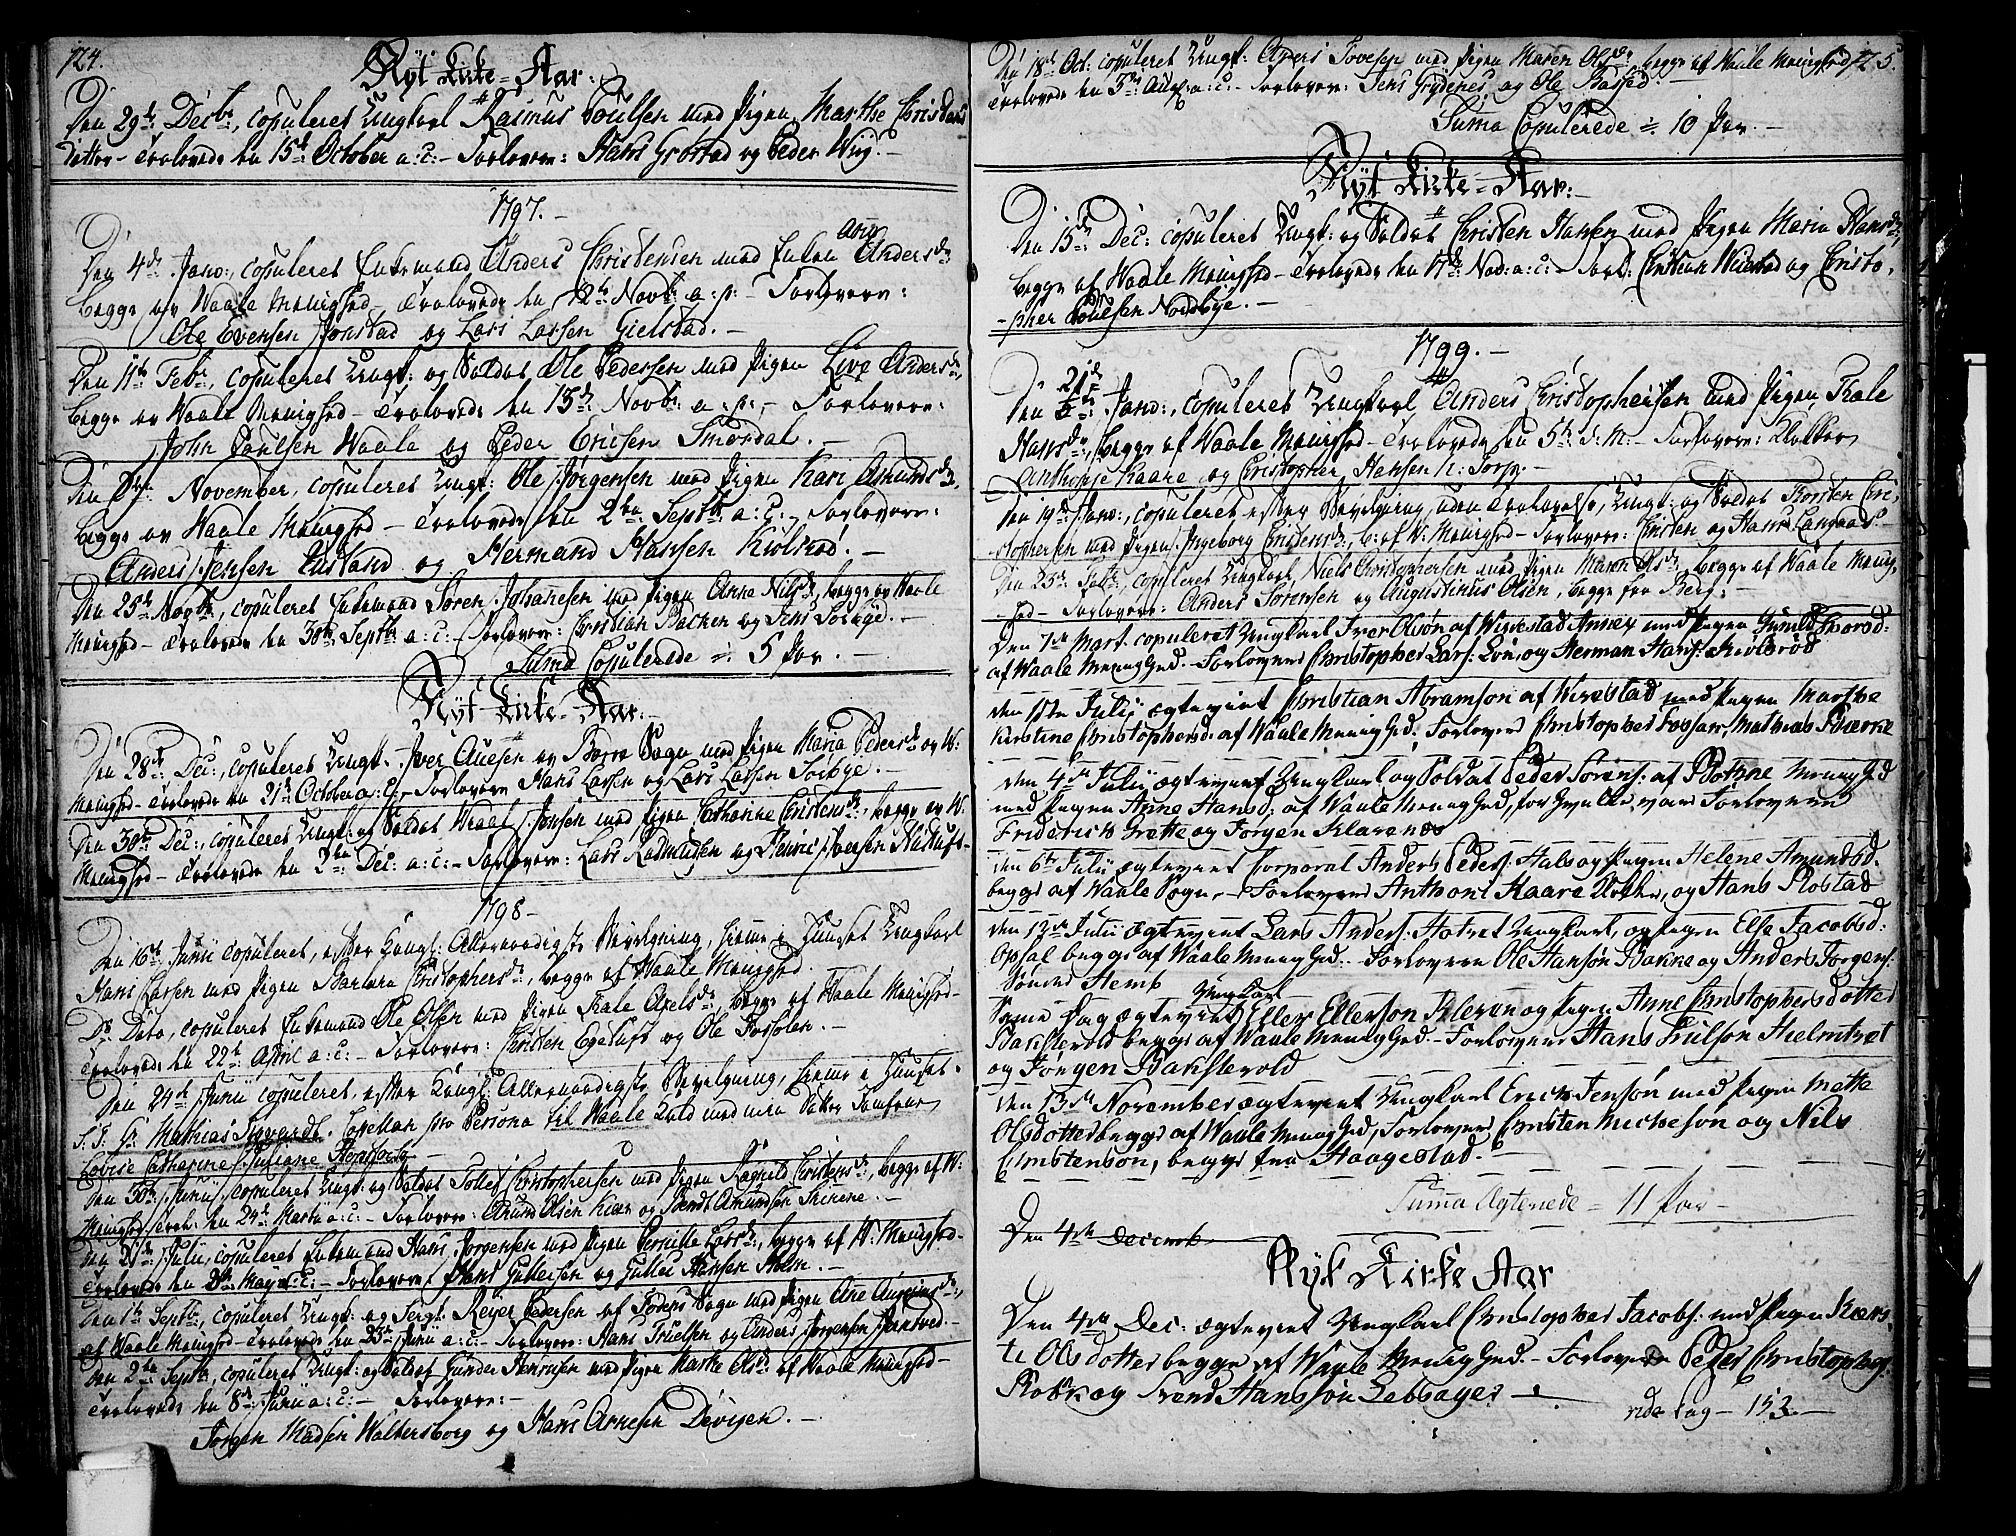 124.
Nÿt Kirke-Aar:
Den 29de Decbr, copuleret Ungkarl Rasmus Poulsen med Pigen Marthe Christens
datter - Trolovede den 15de October a: c:- Forlovere: Hans Grøstad og Peder Wiig. -
1797. -
Den 4de Janv:, copuleret Enkemand Anders Christensen med Enken Anders dr.
begge av Waale Menighed - Trolovede den 12te Novbr a: p: - Forlovere:
Ole Evensen Jonstad og Lars Larsen Gielstad. -
Den 11te Febr, copuleret Ungk: og Soldat Ole Pedersen med Pigen Live Andersdr,
begge av Waale Menighed - Trolovede den 13de Novbr a: p:, - Forlovere:
John Paulsen Waale og Peder Ericsen Smørdal. -
Den November, copuleret Ungk: Ole Jørgensen med Pigen Kari Asmundsdr,
begge av Waale Menighed - Trolovede den 2den Septbr a: c: - Forlovere:
Anders Jensen og Hermand Hansen Kiolerød. -
Den 25de Novbr, copuleret Enkemand Søren Johannesen med Pigen Anne Nilsdr, begge av Waale
Menighed - Trolovede den 30te Septbr a: c: - Forlovere: Christian Backen og Jens Solbye. -
Summa Copulerede =: 5 Par. -
Nÿt Kirke-Aar:
Den 28de Dec:, copuleret Ungk: Iver Auesen av Borre Sogn med Pigen Maria Pedersdr av W:
Menighed - Trolovede den 21de October a: c:, Forlovere Hans Larsen og Lars Larsen Solbye. -
Den 30te Dec:, copuleret Ungk: og Soldat Jonsen med Pigen Catharine Christensdr:, begge av W:
Menighed - Trolovede den 2den Dec: a: c: - Forlovere: Lars Rasmussen og Iversen
1798 -
Den 16de Junii copuleret, efter Kongl: Allernaadigste Bevilgning, hiemme i Huuset Ungkarl
Hans Larsen med Pigen Barbara Christophersdr:, begge af Waale Menighed.
Do Dato, copuleret Enkemand Ole Olsen med Pigen Kale Axelsdr: begge af Waale Menighed -
Trolovede den 22de April a: c: - Forlovere: Christen Egetuft og Ole Forsolen. -
Den 24de Junii copuleret, efter Kongl: Allernaadigste Bevilgning, hiemme i Huuset -
S: T: Hr: Mathias Sigvardt, Capellan pro Persona til Waale Kald med min Datter Jomfrue
Lovise Catharine Juliane -
Den 30te Junii, copuleret Ungk: og Soldat Tollef Christophersen med Pigen Ragnild Christensdr:, begge af W:
Menighed, Trol: den 24de Martii a: c: - Forlovere: Amund Olsen Kiær og Bendt Amundsen Skinene. -
Den 21de Julii, copuleret Enkemand Hans Jørgensen med Pigen Pernille Larsdr:, begge af W: Menighed -
Trolovede den Maji a: c: - Forlovere: Hans Gullersen og Gulles Hansen Holm. -
Den 1te Septbr, copuleret Ungk: og Sergt: Reyer Pedersen af Foders Sogn med Pigen Ane dr:,
af Waale Menighed - Trolovede den 23de Junii a: c: - Forlovere: Hans Truelsen og Anders Jørgensen
Den 2den Septbr, copuleret Ungk: og Soldat Gunder Henricsen med Pigen Marthe Olsdr: af Waale Menighed -
Trolovede den 8de Junii a: c: - Forlovere: -
Jørgen Madsen Waltersborg og Hans Arnesen Devigen. -
Den 18de Oct: copuleret Ungk: Anders Tovesen med Pigen Maren Olsdr: begge af Waale Menighed 125.
Trolovede den 3die Aug: a: c: - Forlovere: Jens Grydenes og Ole Basberg. -
Summa Copulerede =: 10 Par. -
Nÿt Kirke-Aar:
Den 15de Dec: copuleret Ungk: og Soldat Christen Hansen med Pigen Maria Hansdr,
begge af Waale Menighed - Trolovede den 17de Nov: a: c: - Forl: Christian og Christo,
-pher Poulsen Nordbye. -
1799. -
Den 21de Janv:, copuleret Ungkarl Anders Christophersen med Pigen Kale
Hansdr:, begge af Waale Menighed - Trolovede den 5te d: M: - Forlovere: Klokker
Anthonÿe Kaare og Christopher Hansen N: Torp. -
Den 19de Janv:, copuleret efter Bevilgning, uden Trolovelse, Ungk: og Soldat Torsten Chri,
stophersen med Pigen Ingeborg Christensdr, b: af W: Menighed - Forlovere: Christen og Hans Langaas -
Den 23de Febr, copuleret Ungkarl Niels Christophersen med Pigen Maren Olsdr, begge af Waale Menig,
hed - Forlovere: Anders Sørensen og Augustinus Olsen, begge fra Berg: -
Den 7de Mart. copuleret Ungkarl Iver Olsøn af Wirrestad Annex med Pigen Gunild Thorsd:
af Waale Menighed. Forlovere Christopher Lars: Løn, og Herman Hans: Kiolerød
den 1ste Julij ægteviet Christian Abramson af Wirestad med Pigen Marthe
Kirstine Christophersd: af Waale Menighed, Forlovere Christopher Fossan, Mathias Bierke
den 4de Julij ægteviet Ungkarl og Soldat Peder Sørens: af Bothne Menighed
med Pigen Anne Hansd: af Waale Menighed, for hvilke vare Forlovere
Friderich Grette og Jørgen Klavenæs
den 6te Julij ægteviet Corporal Anders Peders: Hals og Pigen Helene Amundsd.
begge af Waale Sogn - Forlovere Anthoni Kaare Klokker, og Hans Rostad
den 13de Julij ægteviet Lars Anders: Hotvet Ungkarl, og Pigen Else Jacobsd:
Opsal begge af Waale Menighed. - Forlovere Ole Hansøn Bakke og Anders Jørgens:
Søndre Hemb
Samme Dag ægteviet Ungkarl Eller Ellerson Kleven og Pigen Anne Christophersdotter
Bakstevold begge af Waale Menighed - Forlovere Hans Trulson Hielmtvet
og Jørgen Bakstevold
den 13de November ægteviet Ungkarl Erich Jensøn med Pigen Mette
Olsdotter begge af Waale Menighed, Forlovere Christen Michelsøn og Nils
Christenson, begge fra Haagestad.
Summa Ægteviede = 11 Par -
Den 4de Decemb.
Nÿt Kirke Aar
Den 4de Dec: ægteviet Ungkarl Christopher Jacobs: med Pigen Kiers,
ti Olsdotter begge af Waale Menighed. - Forlovere Peder Christophers:
Robek og Trend Hansøn Lebsager -
vide Pag - 153. -